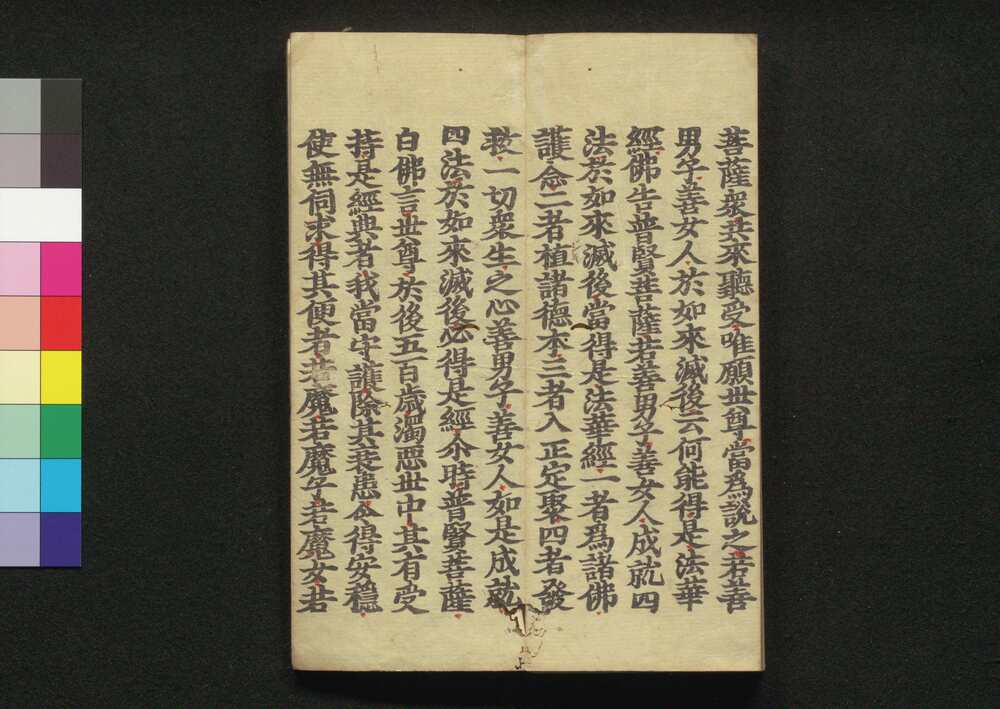 菩薩衆共來聽受唯願世尊當爲說之若善
男子善女人於如來滅後云何能得是法華
經佛告普賢菩薩若善男子善女人成就四
法於如來滅後當得是法華經一者爲諸佛
護念二者植諸德本三者入正定聚四者發
救一切衆生之心善男子善女人如是成就
四法於如來滅後必得是經尒時普賢菩薩
白佛言世尊於後五百歲濁惡世中其有受
持是經典者我當守護除其衰患令得安穩
使無伺求得其便者若魔若魔子若魔女若